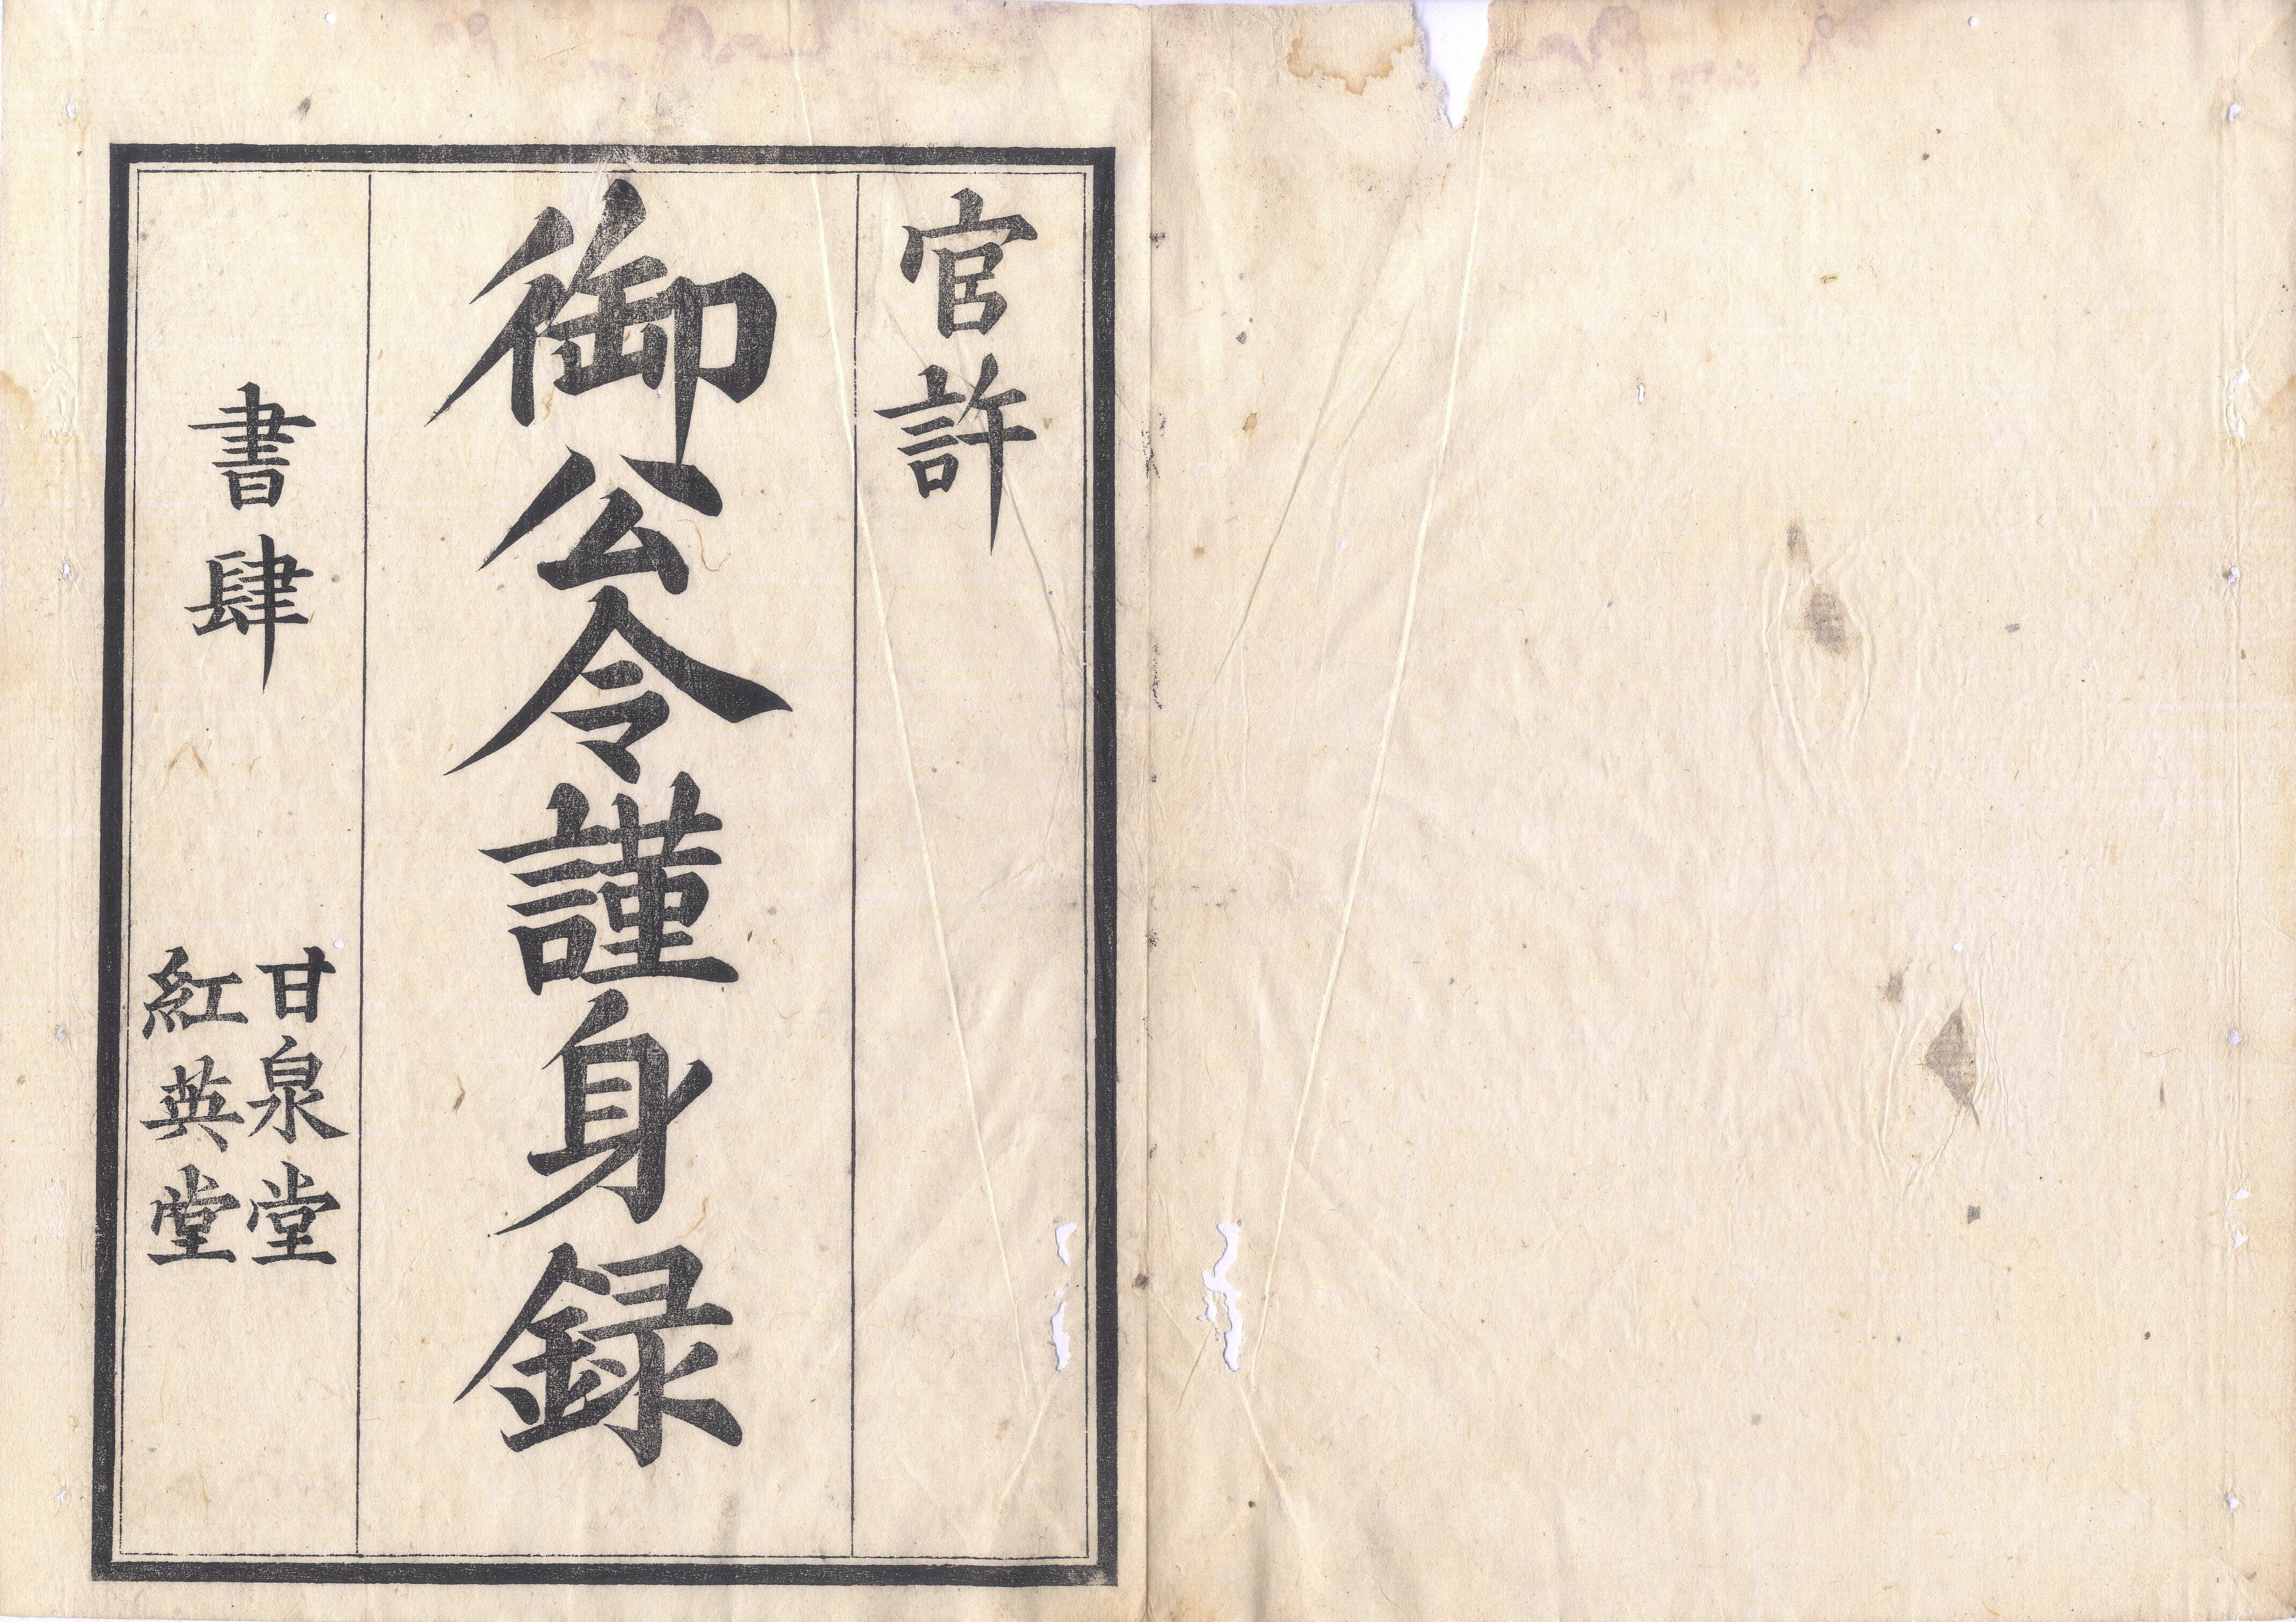 官許
御公令謹身録
書肆
甘泉堂
紅英堂